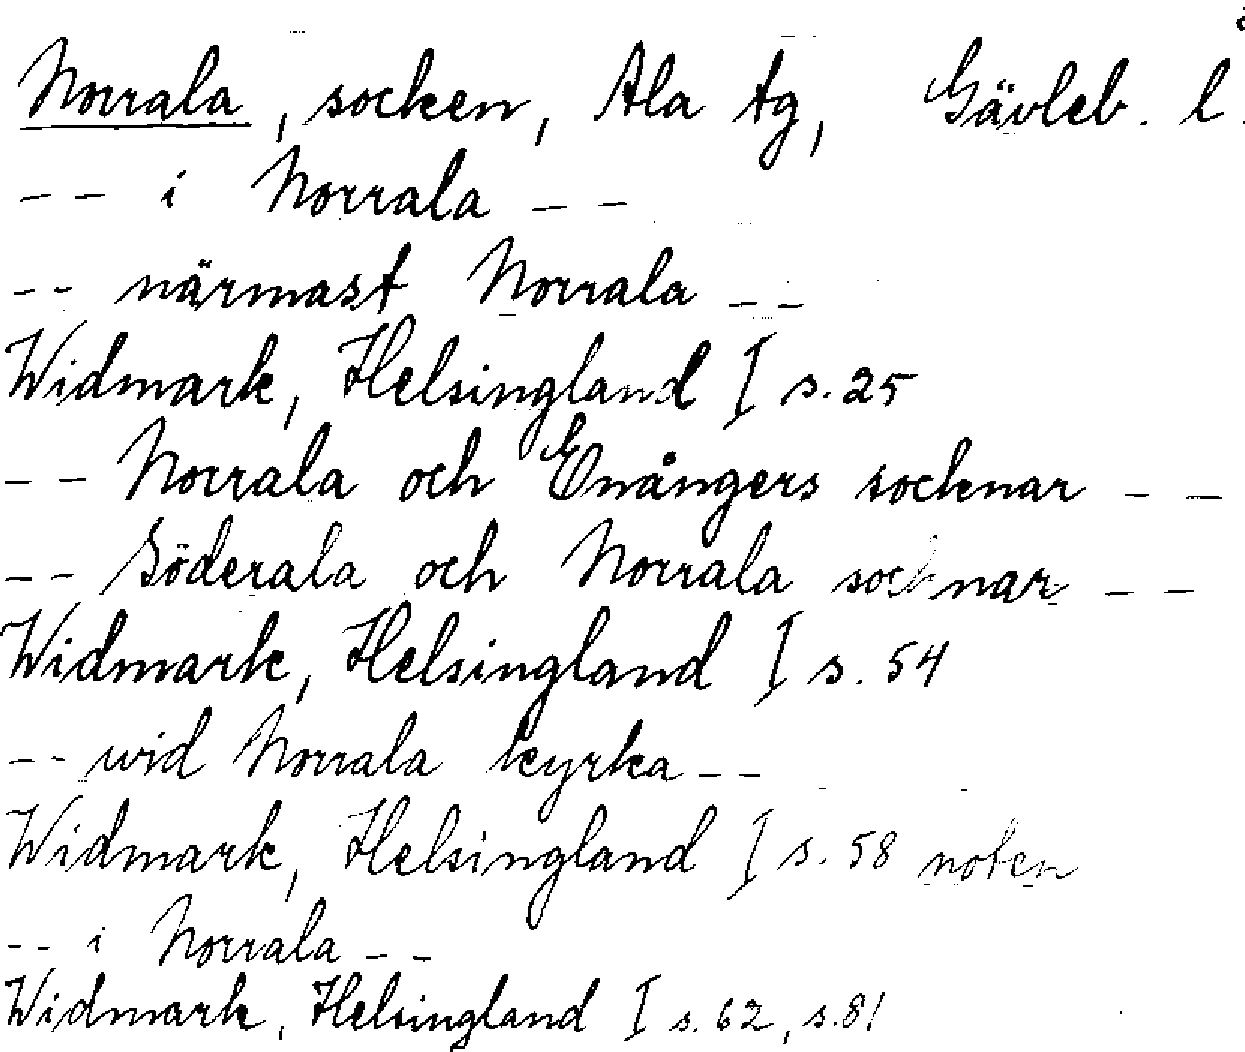 Norrala, socken, Ala tg, Gävleb. l.
-- i Norrala --
-- närmast Norrala --
Widmark, Helsingland I s. 25
-- Norrala och Enångers socknar --
-- Söderala och Norrala socknar --
Widmark, Helsingland I s. 54
-- wid Norrala kyrka --
Widmark, Helsingland I s. 58 noten
-- i Norrala --
Widmark, Helsingland I s. 62, s. 81